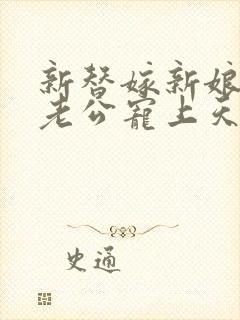 新替嫁新娘
老公宠上天
史通